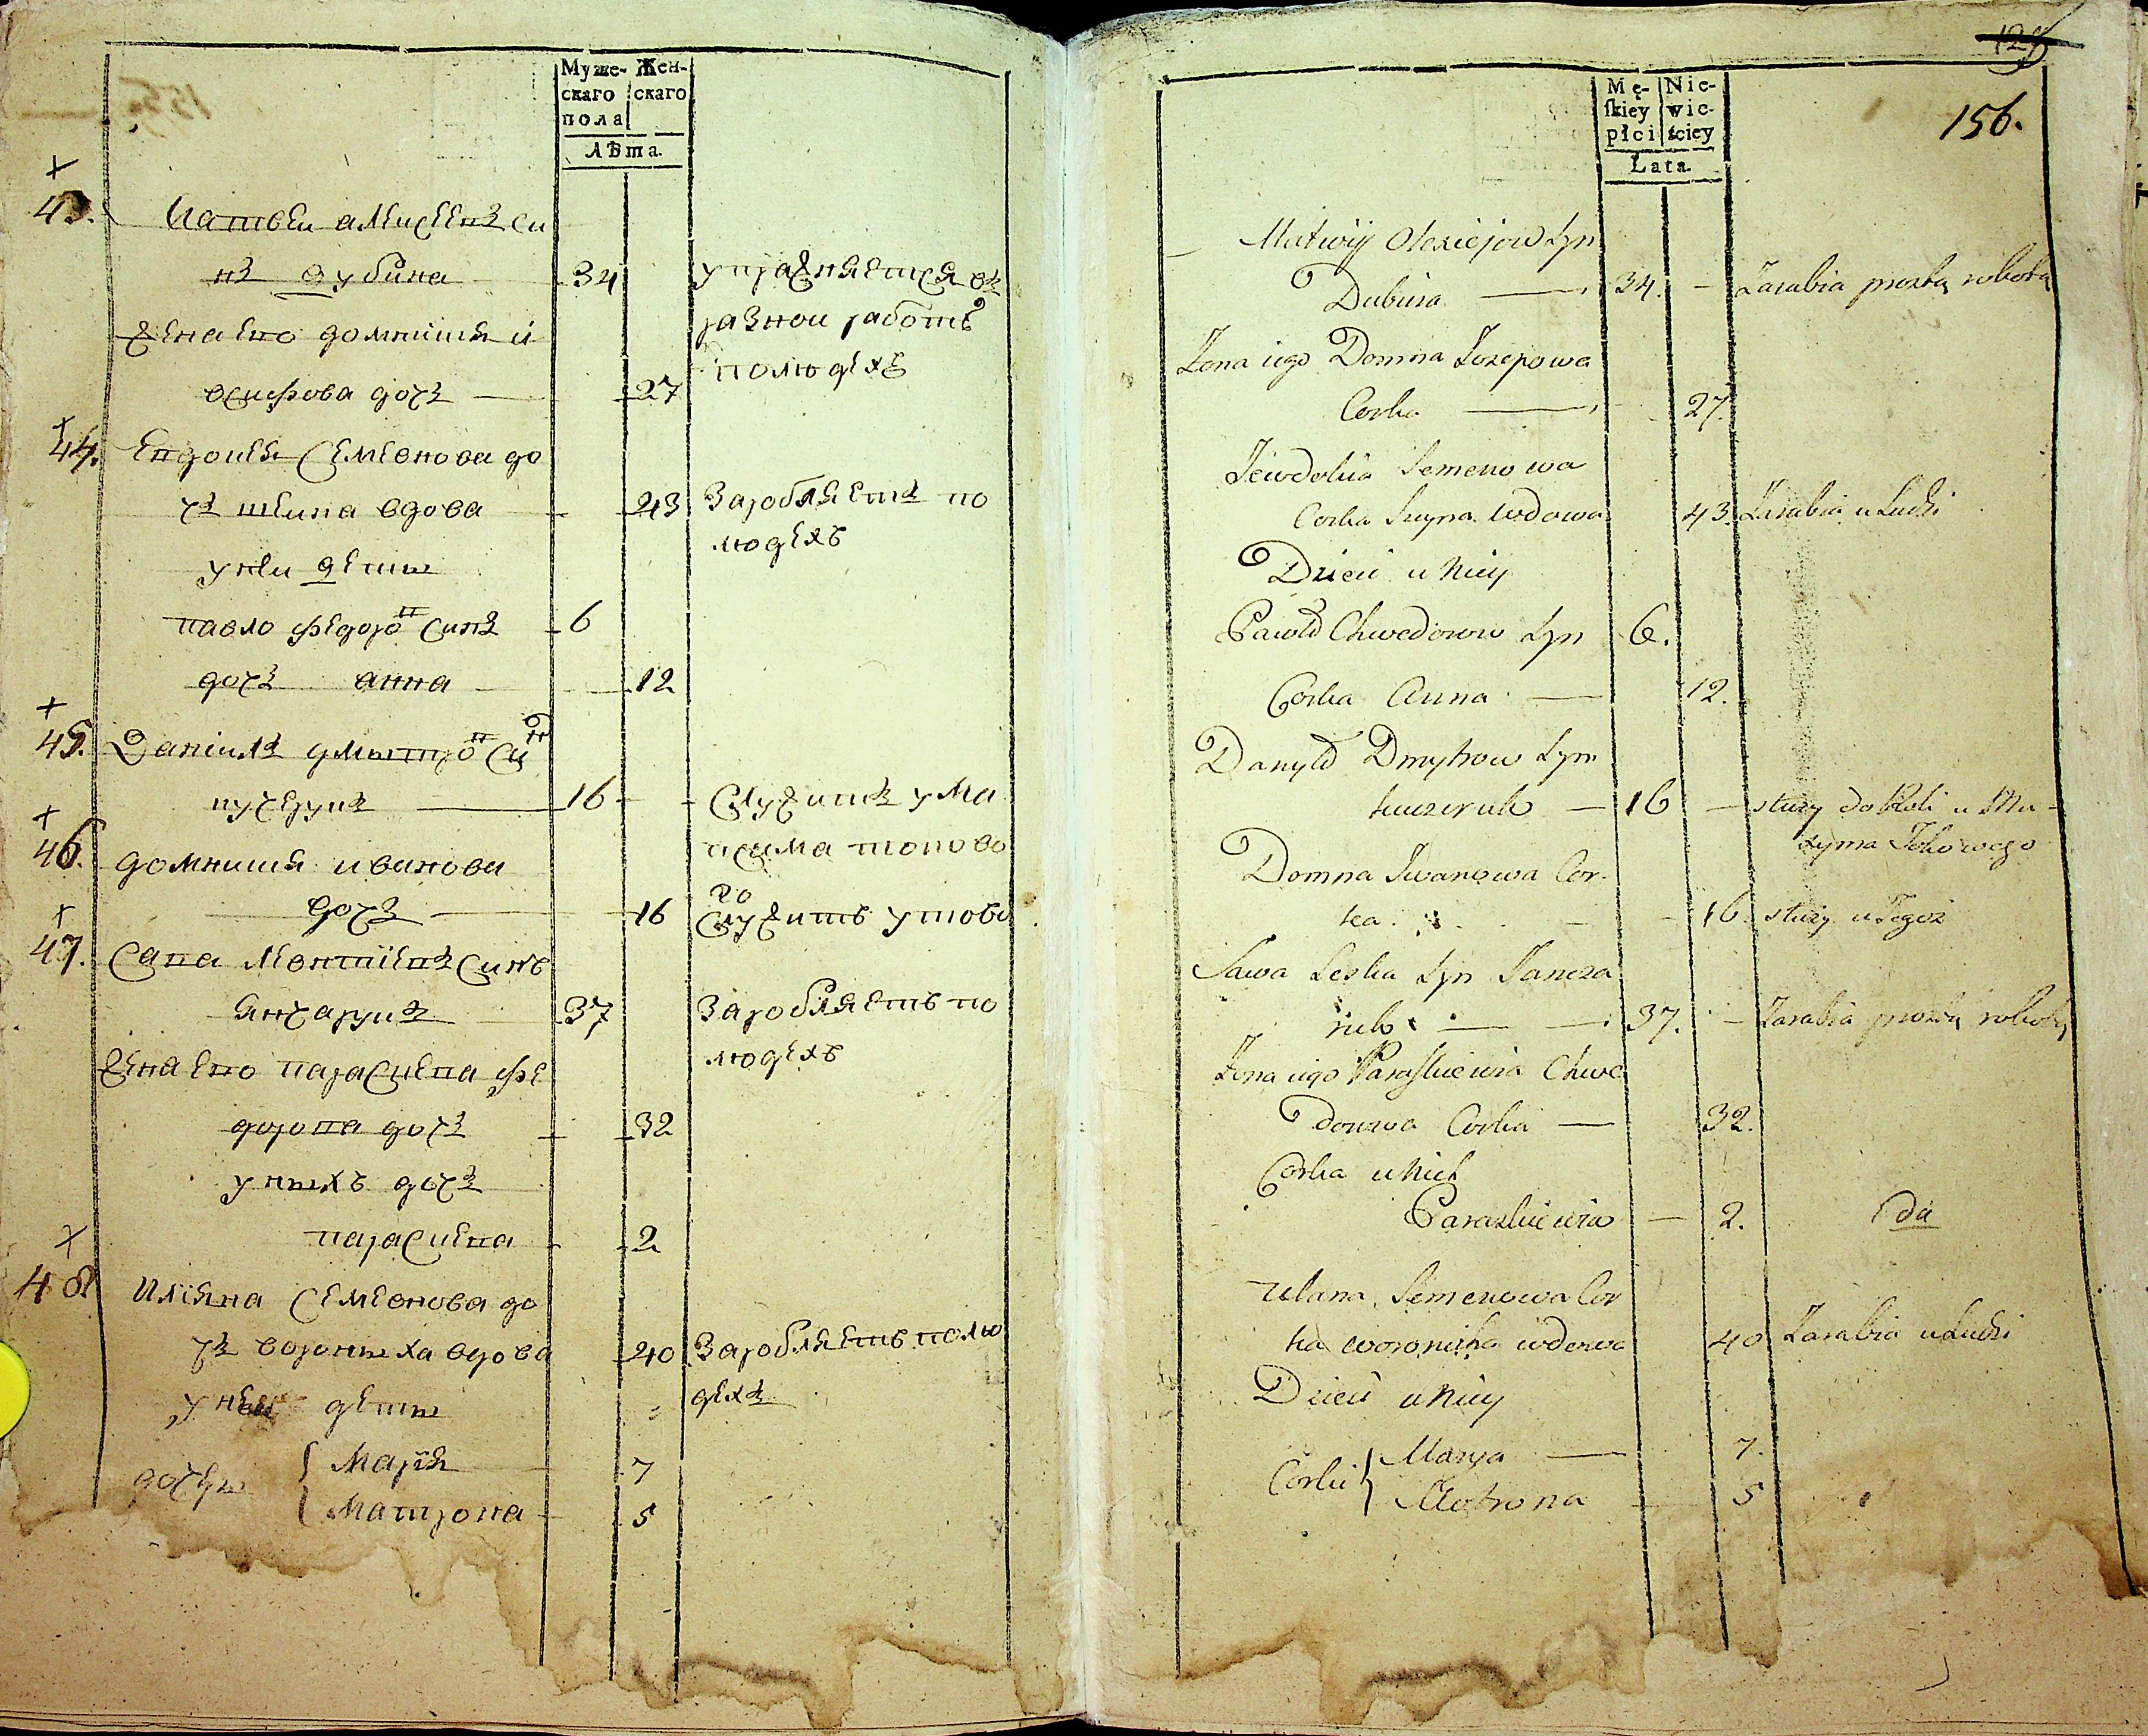 Муже-
скаго
пола
Жен-
скаго
Лѣта.
43.
Матвеи алексеевъ си
нъ дубина 34 упражняется въ
разной работѣ
полюдехъ
жена ево домникия и
осифова дочъ 27
44. Евдокея Семенова до
чъ вдова 43 Заробляетъ по
людехъ
у неи дети
павло федоровъ синъ 6
дочъ анна 12
45. Даніилъ дмытровъ син
кучерукъ 16 Служитъ у Ма
ксима токово
го
46. домникия иванова
дочъ 16 служитъ у тово
47. Сава Леонтиевъ синъ
янчарукъ 37 Заробляетъ по
людехъ
жена ево параскева фе
дорова дочъ 32
у ныхъ дочъ
параскева 2
48 Иліяна Семенова до
чъ вороныха вдова 40 Заробляетъ полю
дехъ
у неи дети
дочеры { Марія 7
Матрона 5
129
156.
Mę-
skiey
płci
Nie-
wie-
ściey
Lata.
Matwiy Olexiejow Syn
Dubina 34. Zarabia prostą robotą
Zona iego Domna Jozepowa
Corka 27.
Jewdokia Semenowa
Corka Wdowa 43. Zarabia u Ludzi
Dzieci u Niey
Pawło Chwedorow Syn 6.
Corka Anna 12.
Danyło Dmytrow Syn
kuczeruk 16 służy do Roli u Ma-
xyma Tokowego
Domna Iwanowa Cor-
ka 16. służy u Tegoż
Sawa Leska Syn Jancza
ruk 37. Zarabia prostą robotą
Zona iego Paraskiewia Chwe
dorowa Corka 32.
Corka u Nich
Paraskiewia 2. da
Ulana Semenowa Cor
ka woronicha wdowa 40 Zarabia u Ludzi
Dzieci u Niey
Corki { Marya 7.
Motrona 5